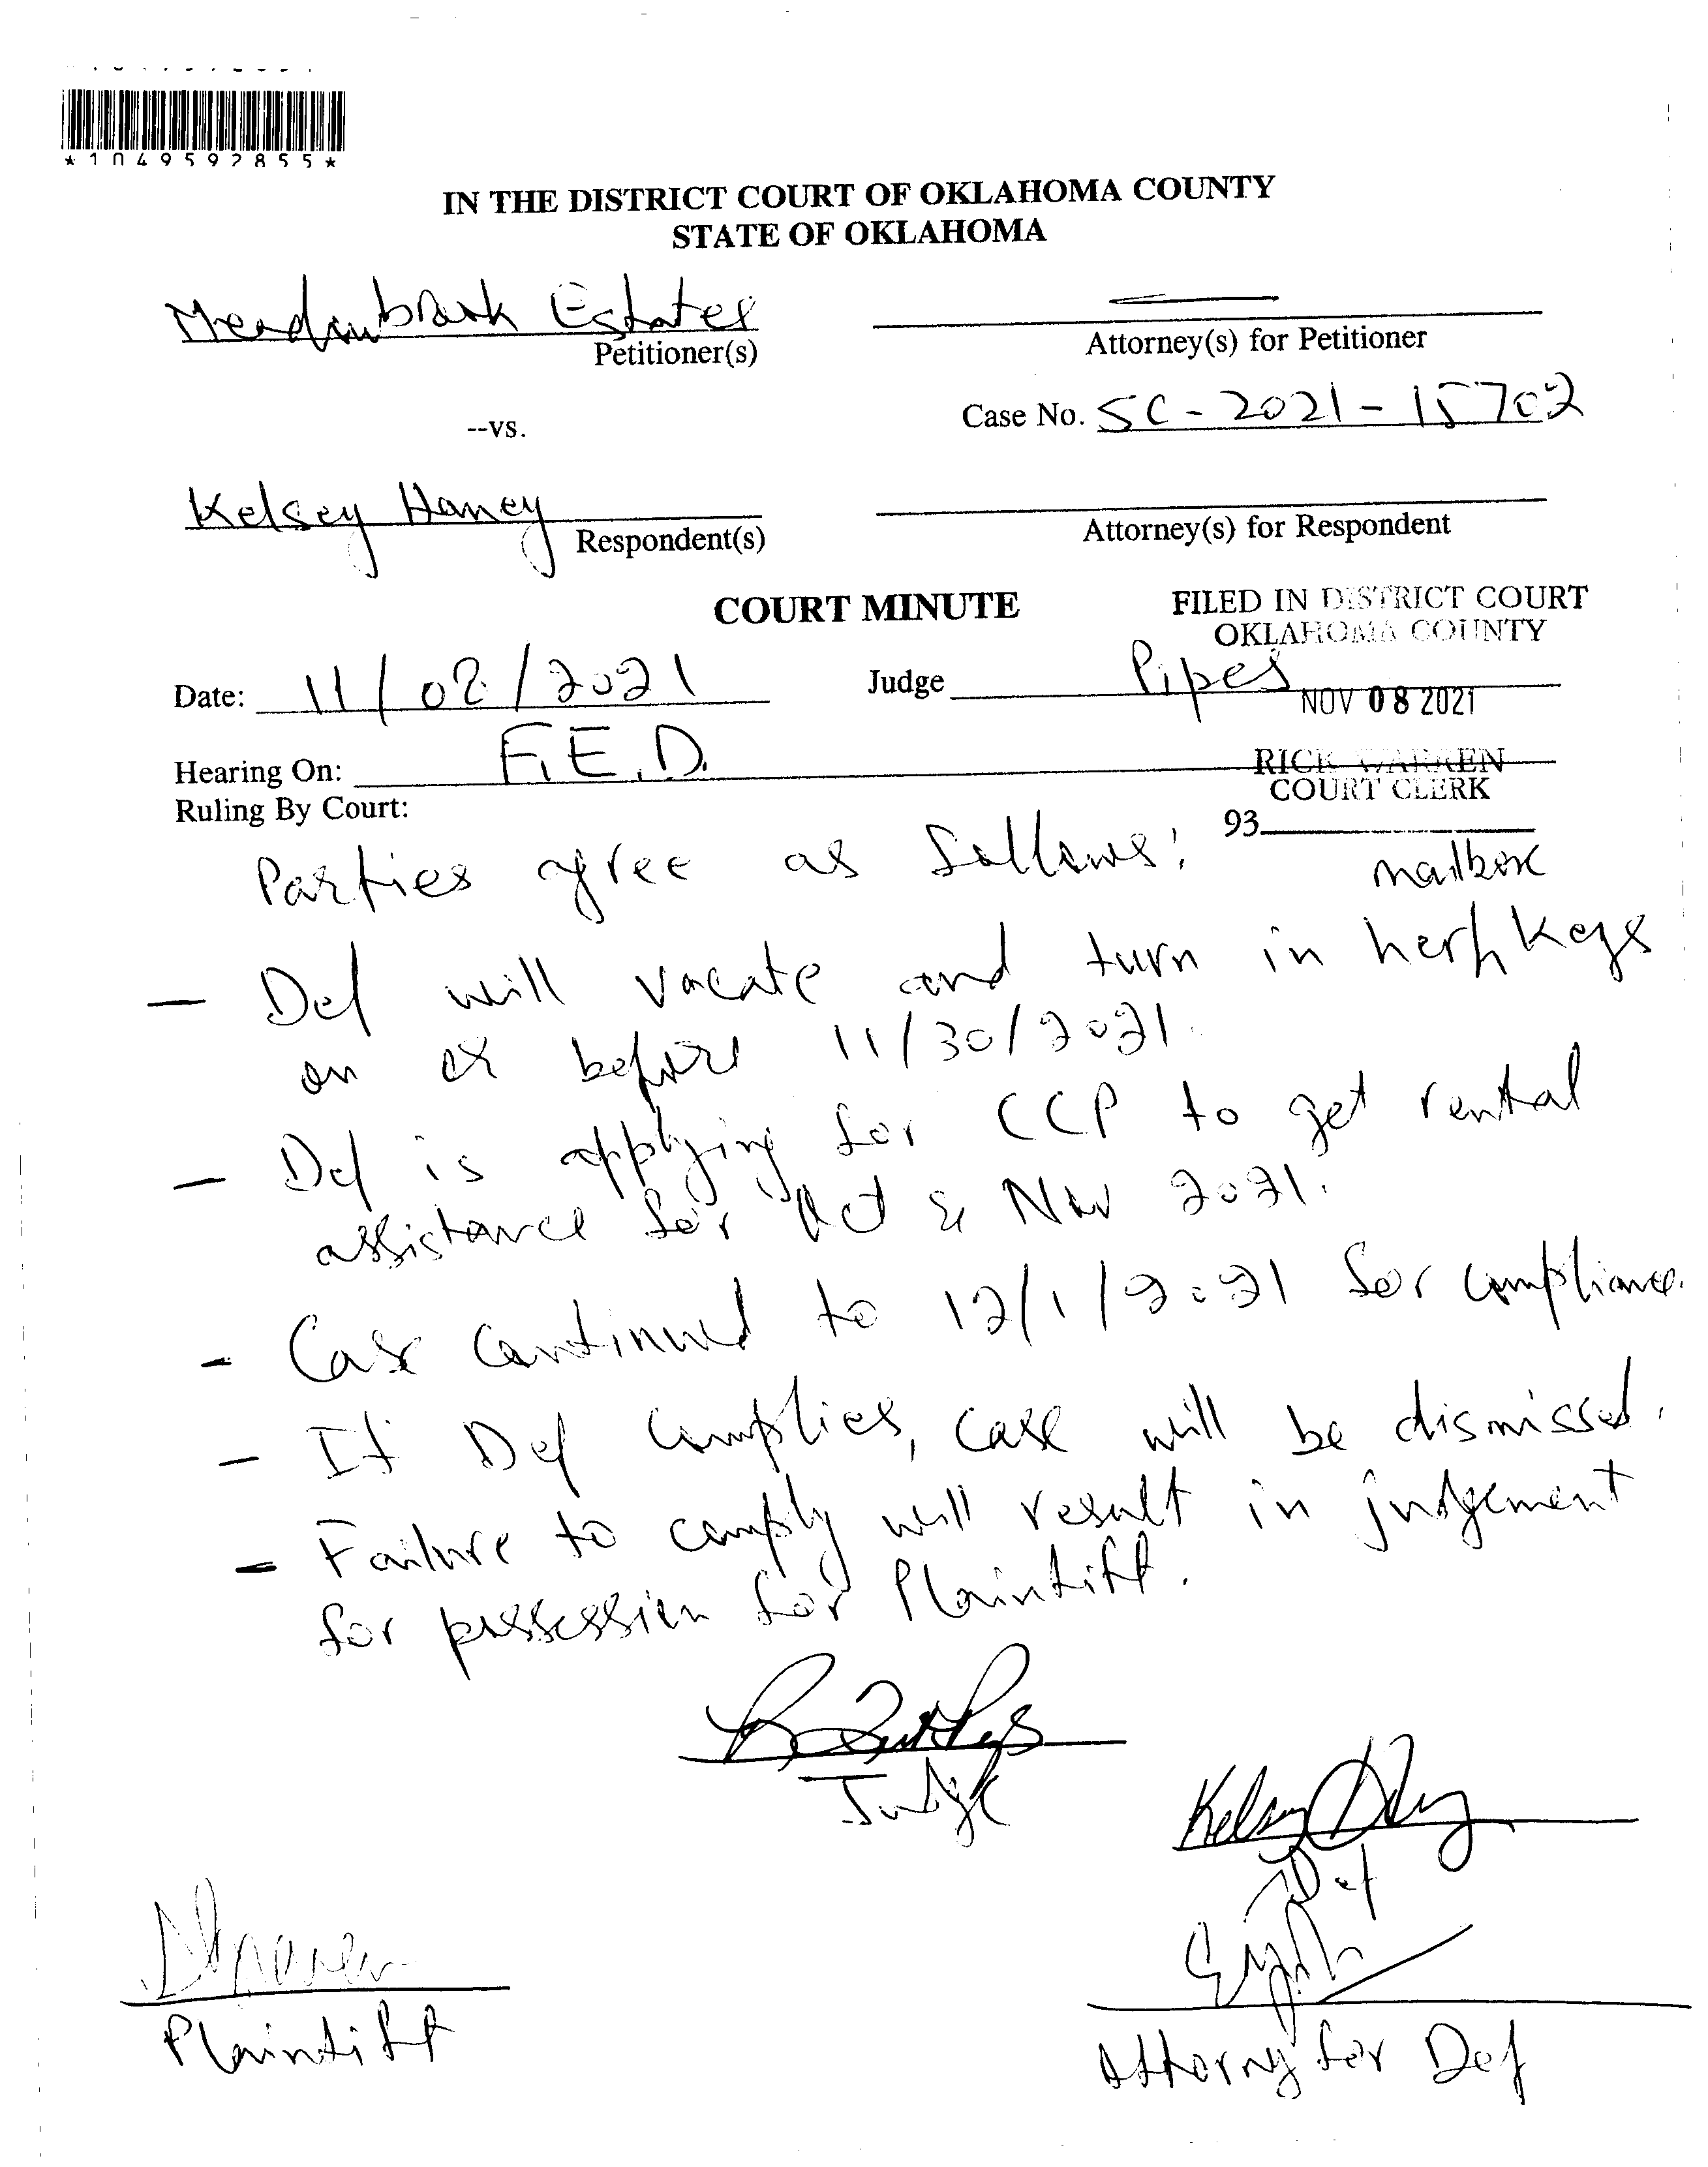 *1049592855*
IN THE DISTRICT COURT OF OKLAHOMA COUNTY
STATE OF OKLAHOMA
Meadowbrook Estates
Petitioner(s)
Attorney(s) for Petitioner
--vs.
Case No. SC-2021-15702
Kelsey Haney
Respondent(s)
Attorney(s) for Respondent
COURT MINUTE
FILED IN DISTRICT COURT
OKLAHOMA COUNTY
Date: 11/02/2021
Judge Pipes
NOV 08 2021
Hearing On: F.E.D.
RICK WARREN
COURT CLERK
Ruling By Court:
93
Parties agree as follows:
mailbox
- Def will vacate and turn in her keys
on or before 11/30/2021.
- Def is applying for CCP to get rental
assistance for Oct & Nov 2021.
- Case continued to 12/1/2021 for compliance.
- If Def complies, case will be dismissed.
- Failure to comply will result in judgement
for possession for Plaintiff.
Judge
Kelsey
Def
Plaintiff
Attorny for Def